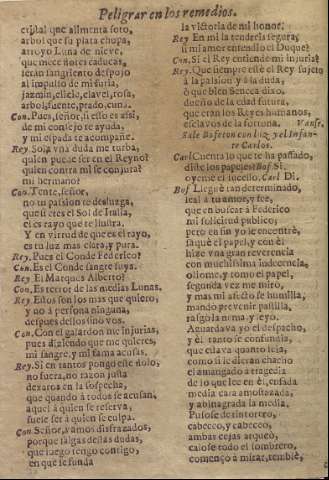 Peligrar en los remedios.
cristal que alimenta soto,
arbol que su plata chupa,
arroyo Luna de nieve,
que mece flores caducas,
serán sangriento despojo
al impulso de mi furia,
jazmin, eliciə, clavel, rosa,
arbol, fuente, prado, cuna.
Con. Pues, señor, si esso es assi,
de mi consejo te ayuda,
y mi espada te acompañe.
Rey. Sola vna duda me turba,
quien puede ser en el Reyno?
quien contra mi se conjura?
mi hermano?
Con. Tente, señor,
no tu passion te desluzga,
que si eres el Sol de Italia,
el es rayo que te ilustra.
Y en virtud de que es el rayo,
es tu luz mas clara, y pura.
Rey. Pues el Conde Federico?
Con. Es el Conde sangre suya.
Rey. El Marques Alberto?
Con. Es terror de las medias Lunas.
Rey. Estos son los mas que quiero,
y no à persona ninguna,
despues dellos uno vos.
Con. Con el galardon me injurias,
pues diziendo que me quieres,
mi sangre, y mi fama acusas.
Rey. Si en tantos pongo este dolo,
no fuera, no razon justa
dexaros en la sospecha,
que quando à todos se acusan,
aquel à quien se reserva,
suele ser à quien se culpa.
Con. Señor, vamos disfrazados,
porque salgas dessas dudas,
que luego tengo contigo,
en que se funda
la victoria de mi honor.
Rey. En mi la tendreis segura;
si mi amor entendio el Duque?
Con. Si el Rey entiende mi injuria?
Rey. Que siempre esté el Rey sujeto
à la passion y à la duda,
ò que bien Seneca dixo,
dueño de la edad futura,
que eran los Reyes humanos,
esclavos de la fortuna. Vanse.
Sale Bofeton con luz, y el Infan-
te Carlos.
Carl. Cuenta lo que te ha passado,
diste los papeles? Bof. Si,
oyeme el sucesso. Carl. Di.
Bof. Lleguè tan determinado,
leal à tu amor, y fee,
que en buscar à Federico
mi solicitud publico;
pero en fin yo le encontrè,
saquè el papel, y con èl
hize vna gran reverencia
con muchissima indecencia,
oliome, y tomo el papel,
segunda vez me miró,
y mas mi afecto se humilla,
mandò prevenir passilla,
pasòla nema, y leyò.
Aguardava yo el despacho,
y èl tanto se confundia,
que cilava quanto leìa,
como si le dieran chacho
el amangado a tragedia
de lo que lee en èl, enfada
media cara amoztazada,
y abinagrada la media.
Pusose de tintorero,
cabeceo, y cabeceo,
ambas cejas arqueò,
caiose todo el sombrero,
començò à mirar, temblè,